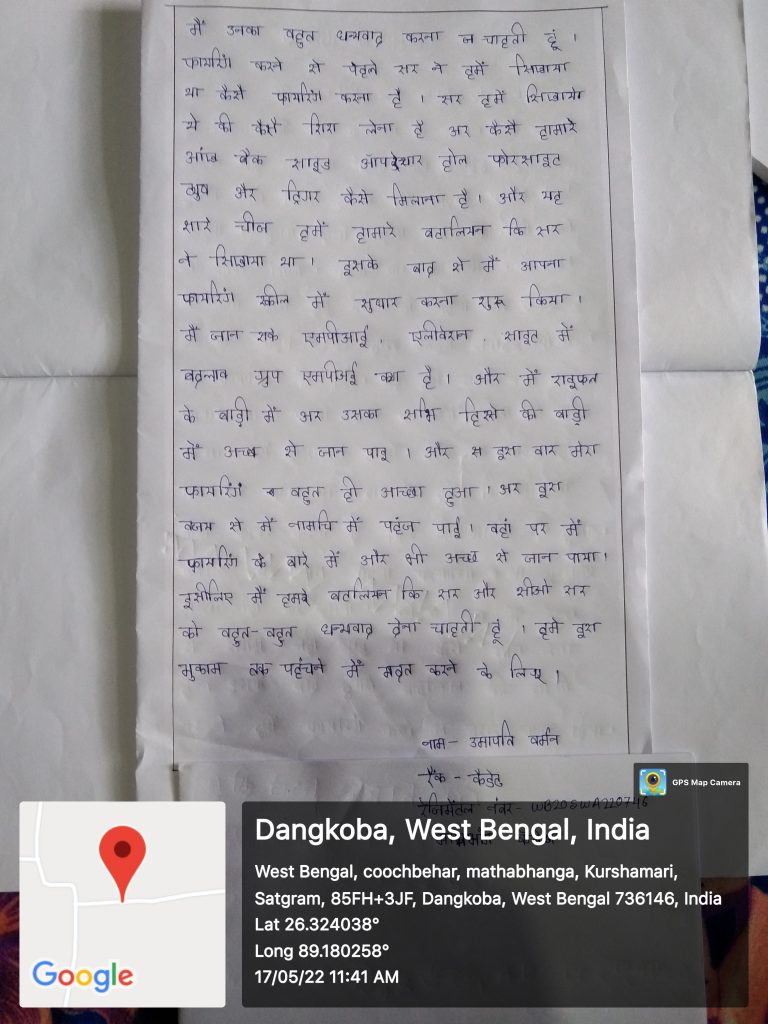 मैं उनका बहुत धन्यवाद करना चाहती हूं ।
फायरिंग करने से पेहले सर ने हमें सिखाया
था कैसे फायरिंग करना है । सर हमें सिखाये
थे की कैसे शिरा लेना है अर कैसे हामारे
आंख बैक साइड ऑपरेचार होल फोरसाइट
ग्रुप और ट्रिगर कैसे मिलाना है । और यह
शारे चीज हमें हामारे बटालियन कि सर
ने सिखाया था । इसके बाद से मैं आपना
फायरिंग स्कील में सुधार करना शुरू किया ।
मैं जान सके एमपीआई , एलीवेशन , साइट में
बदलाव ग्रुप एमपीआई क्या है । और में राइफल
के बाड़ी में अर उसका सभि हिस्से की बाड़ी
में अच्छ से जान पाइ । और इस बार मेरा
फायरिंग बहुत ही आच्छा हुआ । अर इस
वजय से मैं नामचि में पहुंज पाई । वहां पर में
फायरिंग के बारे में और भी अच्छ से जान पाया ।
इसीलिए मैं हमारे बटालियन कि सर और सीओ सर
को बहुत-बहुत धन्यवाद देना चाहती हूं । हमे इस
मुकाम तक पहंचने में मदत करने के लिए ।
नाम - उमापति बर्मन
रैंक - कैडेट
रेजिमेंटल नंबर - WB20SWA220746
GPS Map Camera
Google
Dangkoba, West Bengal, India
West Bengal, coochbehar, mathabhanga, Kurshamari,
Satgram, 85FH+3JF, Dangkoba, West Bengal 736146, India
Lat 26.324038°
Long 89.180258°
17/05/22 11:41 AM